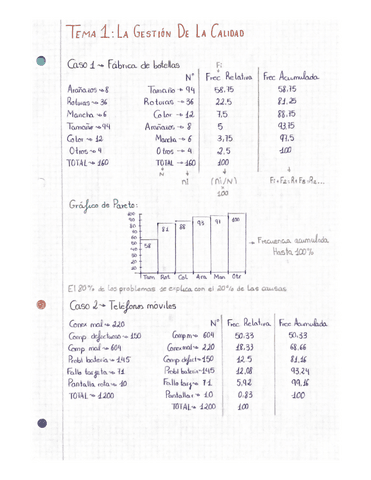 TEMA 1: LA GESTIÓN DE LA CALIDAD
Caso 1 → Fábrica de botellas
Fi
Nº Frec Relativa Frec Acumulada
Arañazos → 8 Tamaño → 94 58.75 58.75
Roturas → 36 Roturas → 36 22.5 81.25
Mancha → 6 Color → 12 7.5 88.75
Tamaño → 94 Arañazos → 8 5 93.75
Color → 12 Mancha → 6 3.75 97.5
Otros → 4 Otros → 4 2.5 100
TOTAL → 160 TOTAL → 160 100
N ni (ni/N) F1+F2=R1+R2+R3...
100
Gráfico de Pareto:
100
90
80
70
60
50
40
30
20
10
58 81 88 93 97 100
Tam Rot Col Ara Man Otr
→ Frecuencia acumulada
Hasta 100%
El 80% de los problemas se explica con el 20% de las causas
Caso 2 → Teléfonos móviles
Nº Frec Relativa Frec Acumulada
Conex mal → 220 Comp m → 604 50.33 50.33
Comp defectuoso → 150 Conex mal → 220 18.33 68.66
Comp mal → 604 Comp defect → 150 12.5 81.16
Probl batería → 145 Probl batería → 145 12.08 93.24
Fallo tarjeta → 71 Fallo targ → 71 5.92 99.16
Pantalla rota → 10 Pantalla r → 10 0.83 100
TOTAL → 1200 TOTAL → 1200 100